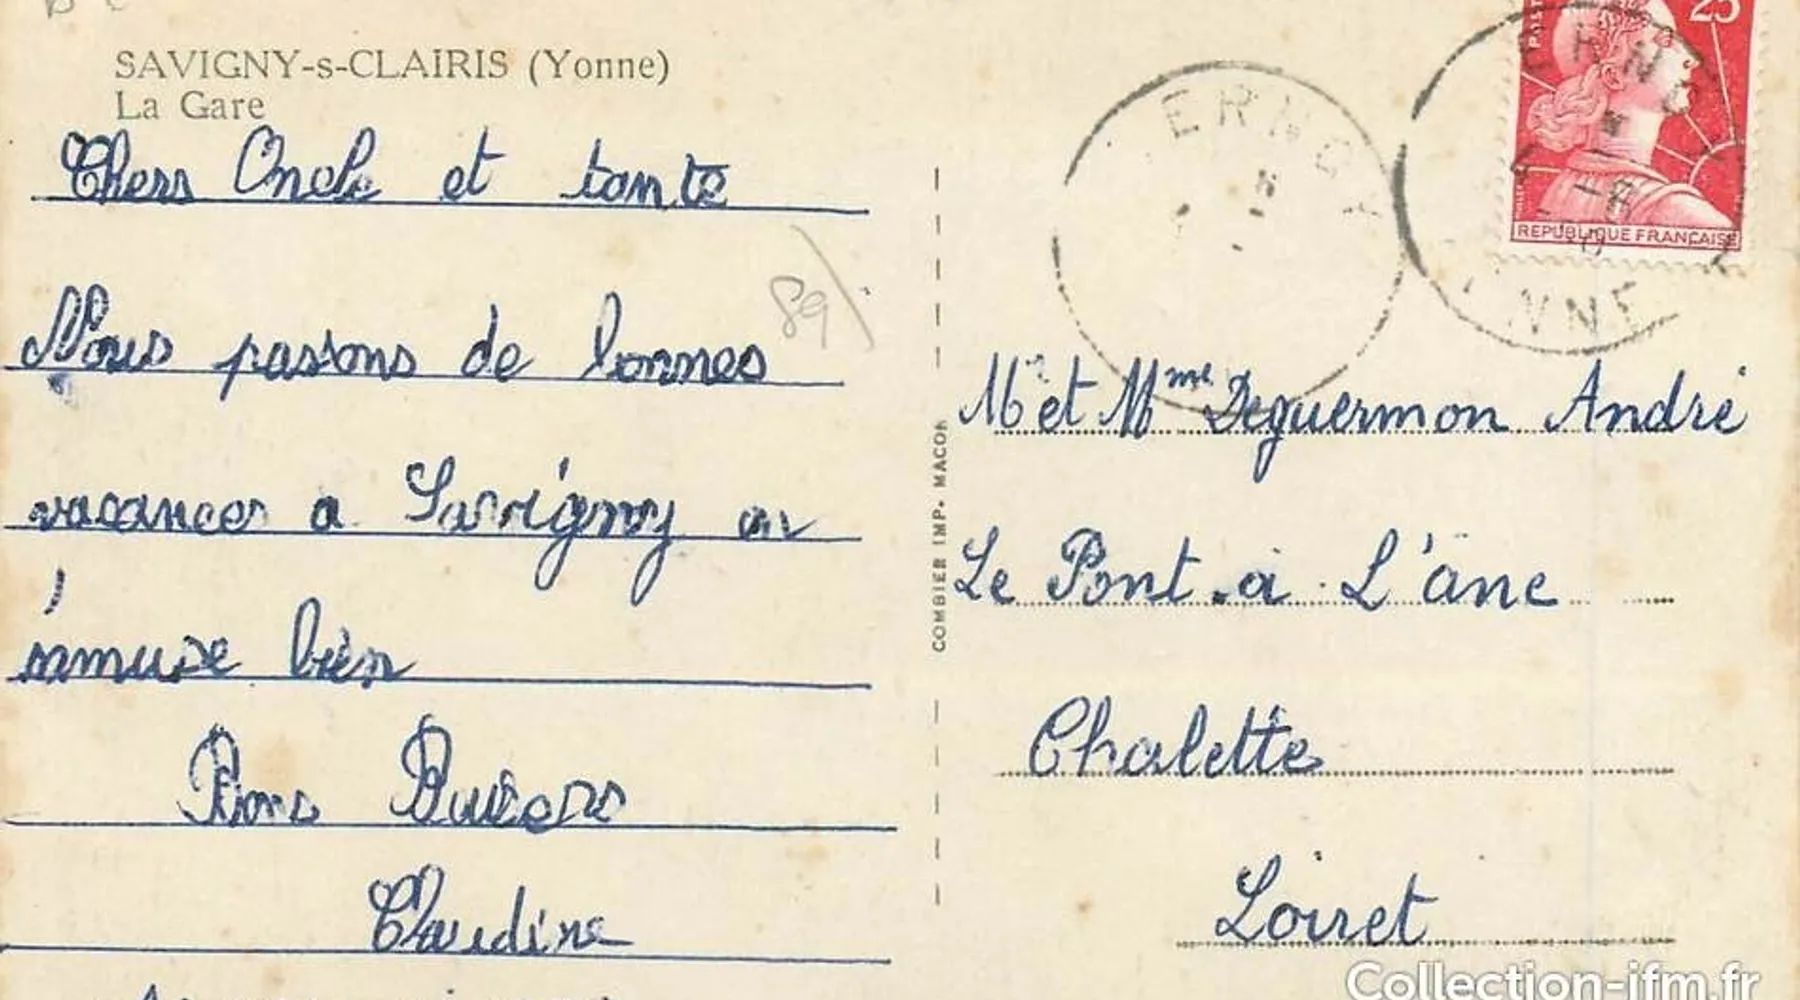 SAVIGNY-s-CLAIRIS (Yonne)
La Gare
Chers Oncle et tante
Nous passons de bonnes
vacances a Savigny on
s'amuse bien
Bons Baisers
Claudine
89
COMBIER IMP. MACON
25
POST
REPUBLIQUE FRANÇAISE
M et Mme Deguermon André
Le Pont à L'âne
Chalette
Loiret
Collection-jfm.fr